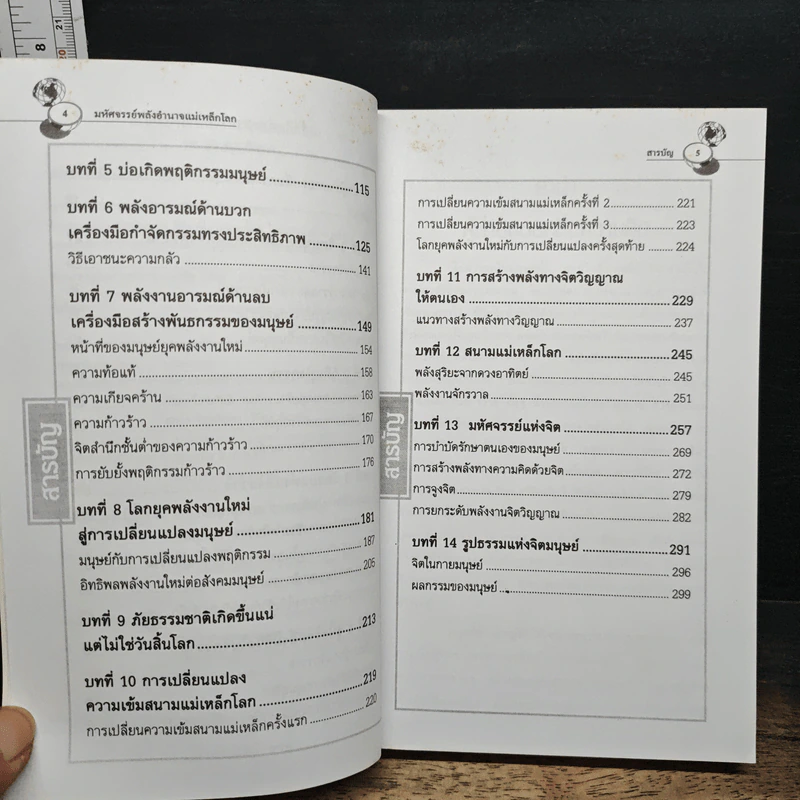 8
21
20
4 มหัศจรรย์พลังอำนาจแม่เหล็กโลก
บทที่ 5 บ่อเกิดพฤติกรรมมนุษย์ 115
บทที่ 6 พลังอารมณ์ด้านบวก
เครื่องมือกำจัดกรรมทรงประสิทธิภาพ 125
วิธีเอาชนะความกลัว 141
บทที่ 7 พลังงานอารมณ์ด้านลบ
เครื่องมือสร้างพันธกรรมของมนุษย์ 149
หน้าที่ของมนุษย์ยุคพลังงานใหม่ 154
ความท้อแท้ 158
ความเกียจคร้าน 163
ความก้าวร้าว 167
จิตสำนึกชั้นต่ำของความก้าวร้าว 170
การยับยั้งพฤติกรรมก้าวร้าว 176
บทที่ 8 โลกยุคพลังงานใหม่
สู่การเปลี่ยนแปลงมนุษย์ 181
มนุษย์กับการเปลี่ยนแปลงพฤติกรรม 187
อิทธิพลพลังงานใหม่ต่อสังคมมนุษย์ 205
บทที่ 9 ภัยธรรมชาติเกิดขึ้นแน่
แต่ไม่ใช่วันสิ้นโลก 213
บทที่ 10 การเปลี่ยนแปลง
ความเข้มสนามแม่เหล็กโลก 219
การเปลี่ยนความเข้มสนามแม่เหล็กครั้งแรก 220
สารบัญ
สารบัญ 5
การเปลี่ยนความเข้มสนามแม่เหล็กครั้งที่ 2 221
การเปลี่ยนความเข้มสนามแม่เหล็กครั้งที่ 3 223
โลกยุคพลังงานใหม่กับการเปลี่ยนแปลงครั้งสุดท้าย 224
บทที่ 11 การสร้างพลังทางจิตวิญญาณ
ให้ตนเอง 229
แนวทางสร้างพลังทางวิญญาณ 237
บทที่ 12 สนามแม่เหล็กโลก 245
พลังสุริยะจากดวงอาทิตย์ 245
พลังงานจักรวาล 251
บทที่ 13 มหัศจรรย์แห่งจิต 257
การบำบัดรักษาตนเองของมนุษย์ 269
การสร้างพลังทางความคิดด้วยจิต 272
การจูงจิต 279
การยกระดับพลังงานจิตวิญญาณ 282
บทที่ 14 รูปธรรมแห่งจิตมนุษย์ 291
จิตในกายมนุษย์ 296
ผลกรรมของมนุษย์ 299
สารบัญ